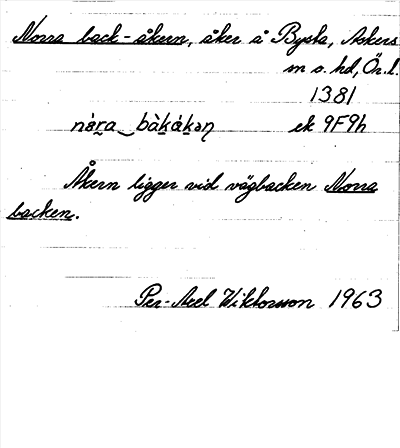 Norra back-åkern, åker å Bysta, Askers
sn o. hd, Ör. l.
1381
nòra bàkákən ek 9F9h
Åkern ligger vid vägbacken Norra
backen.
Per-Axel Wiktorsson 1963